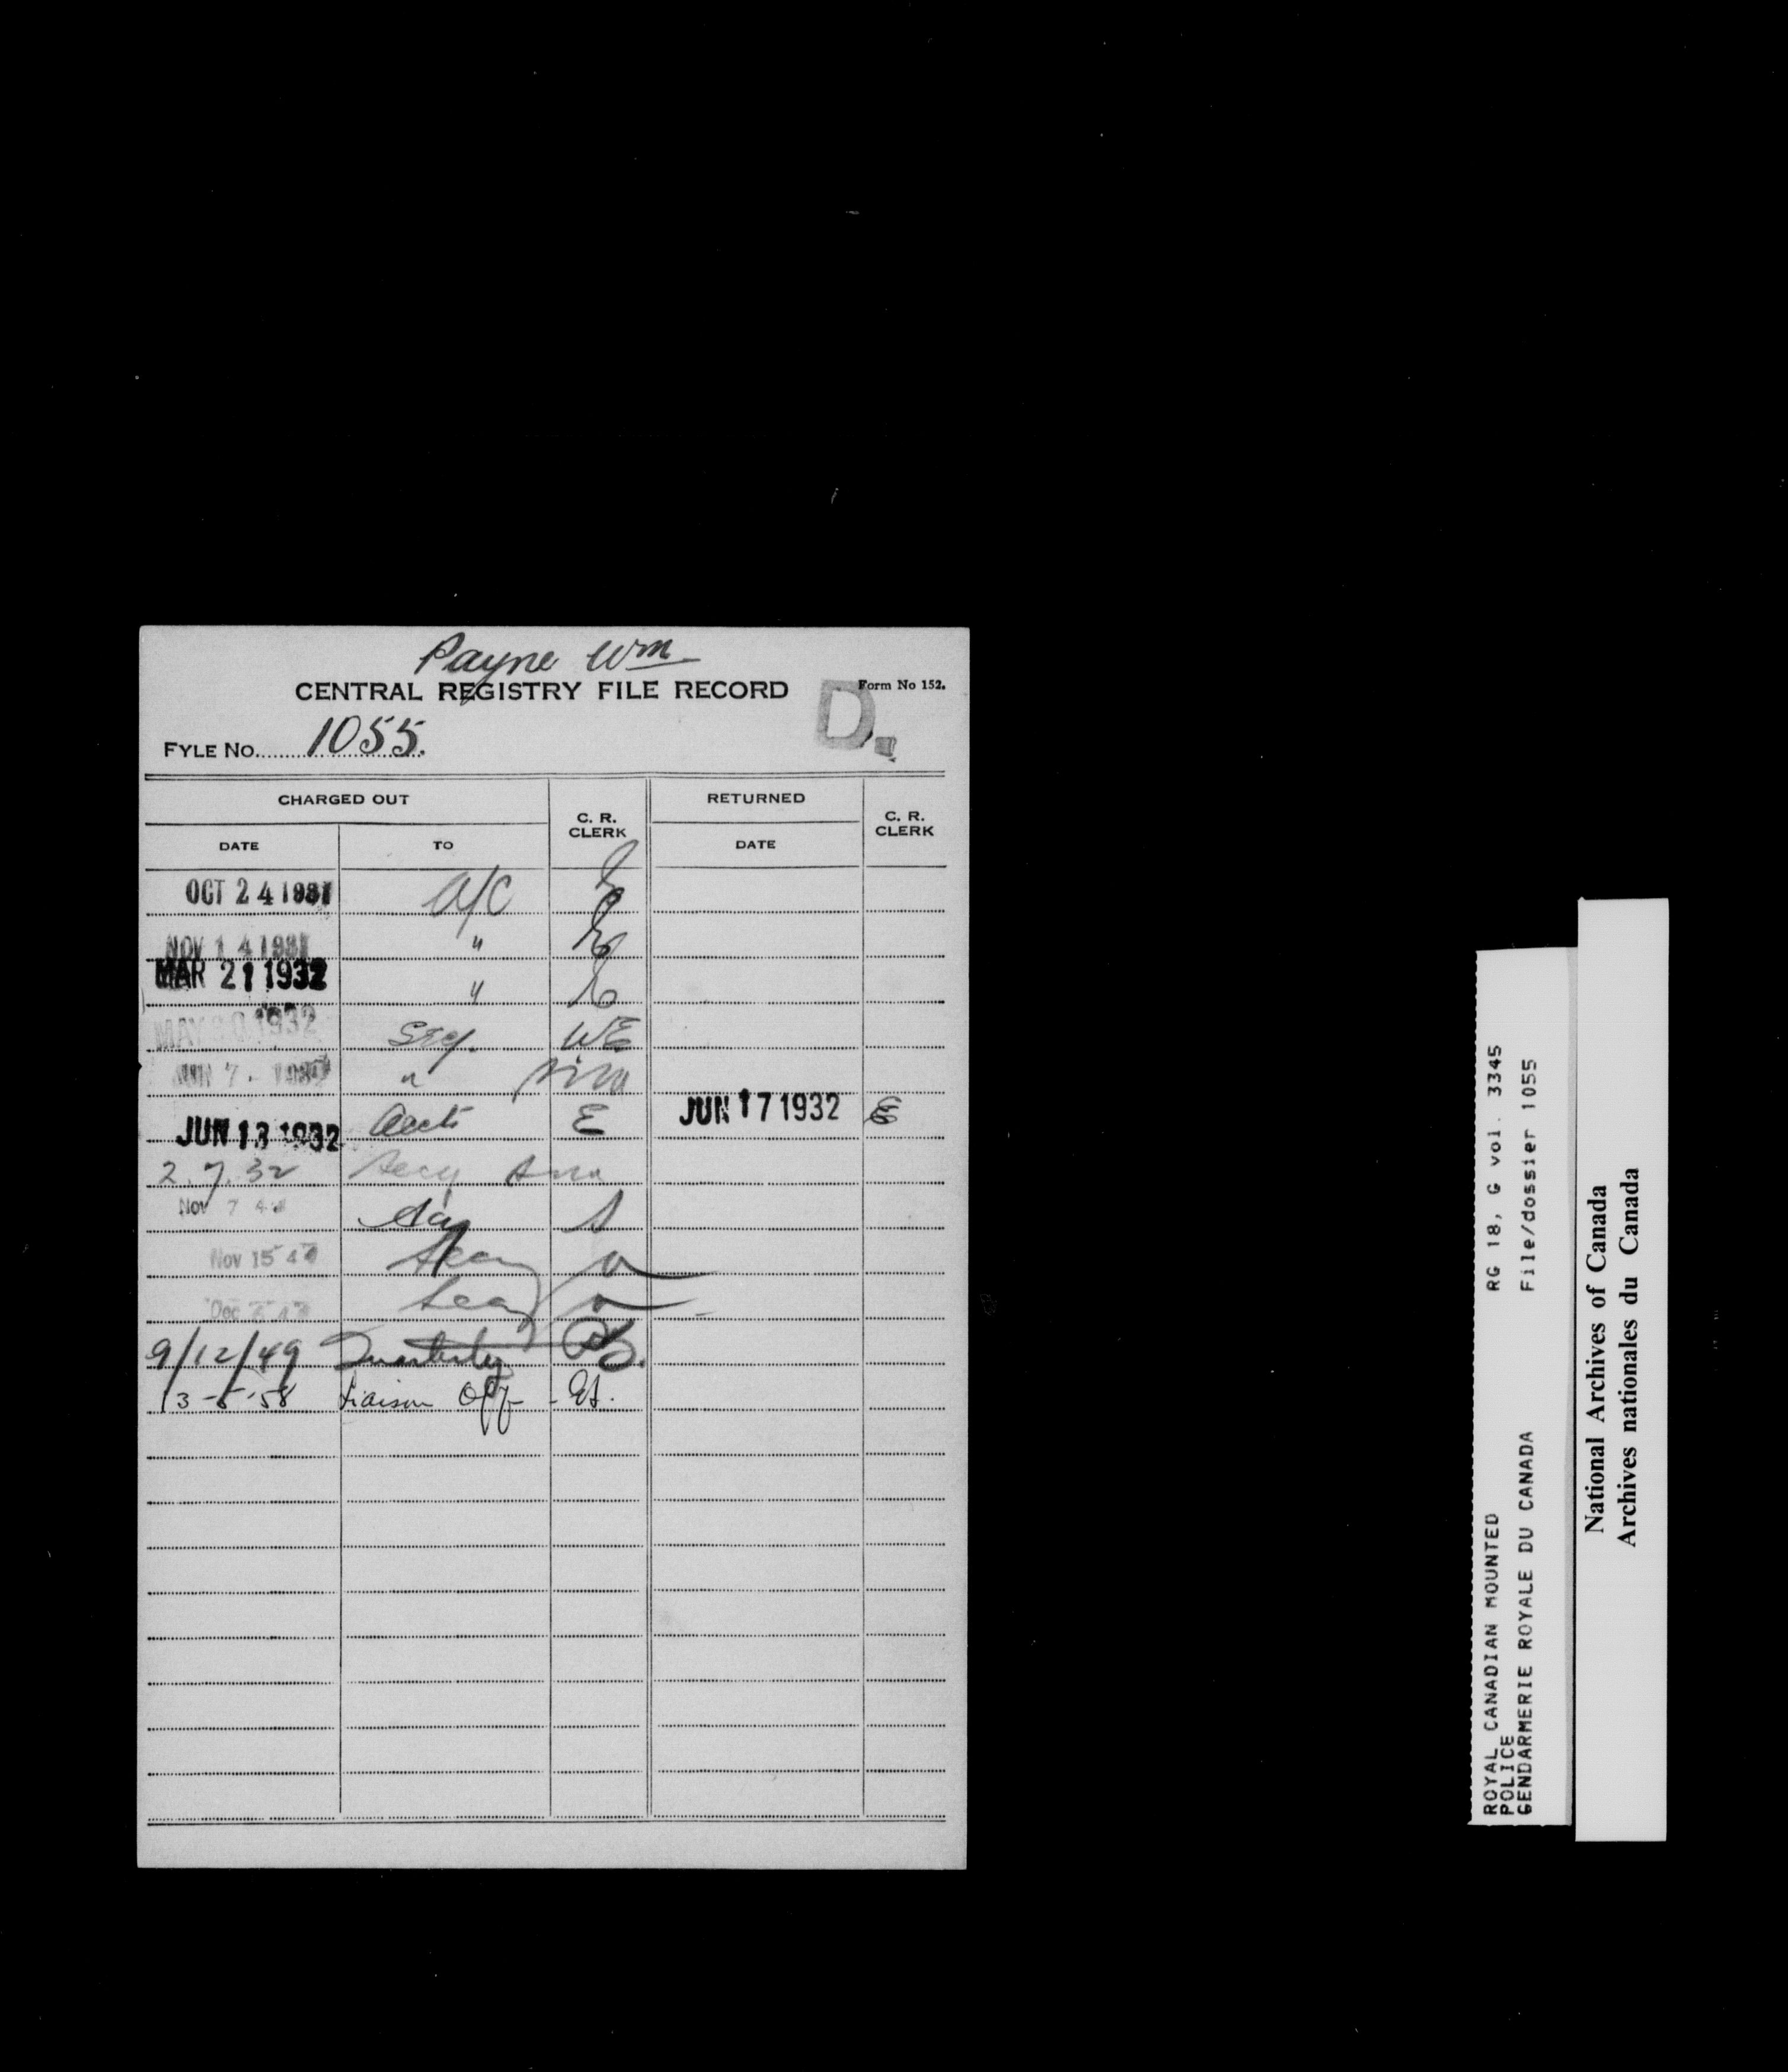 Payne Wm
CENTRAL REGISTRY FILE RECORD
Form No 152.
D.
FYLE No. 1055.
CHARGED OUT
C. R. CLERK
RETURNED
C. R. CLERK
DATE TO DATE
OCT 24 1931 A/C
NOV 14 1931 "
MAR 21 1932 "
MAY 1932 WE
JUN 7 "
JUN 13 1932 Acct E JUN 17 1932 E
2.7.32 Secy
Nov 7 S
Nov 15
Dec
9/12/49 Quarterly
13-5-58 Liaison Off -
ROYAL CANADIAN MOUNTED
POLICE
GENDARMERIE ROYALE DU CANADA
RG 18, G vol. 3345
File/dossier 1055
National Archives of Canada
Archives nationales du Canada